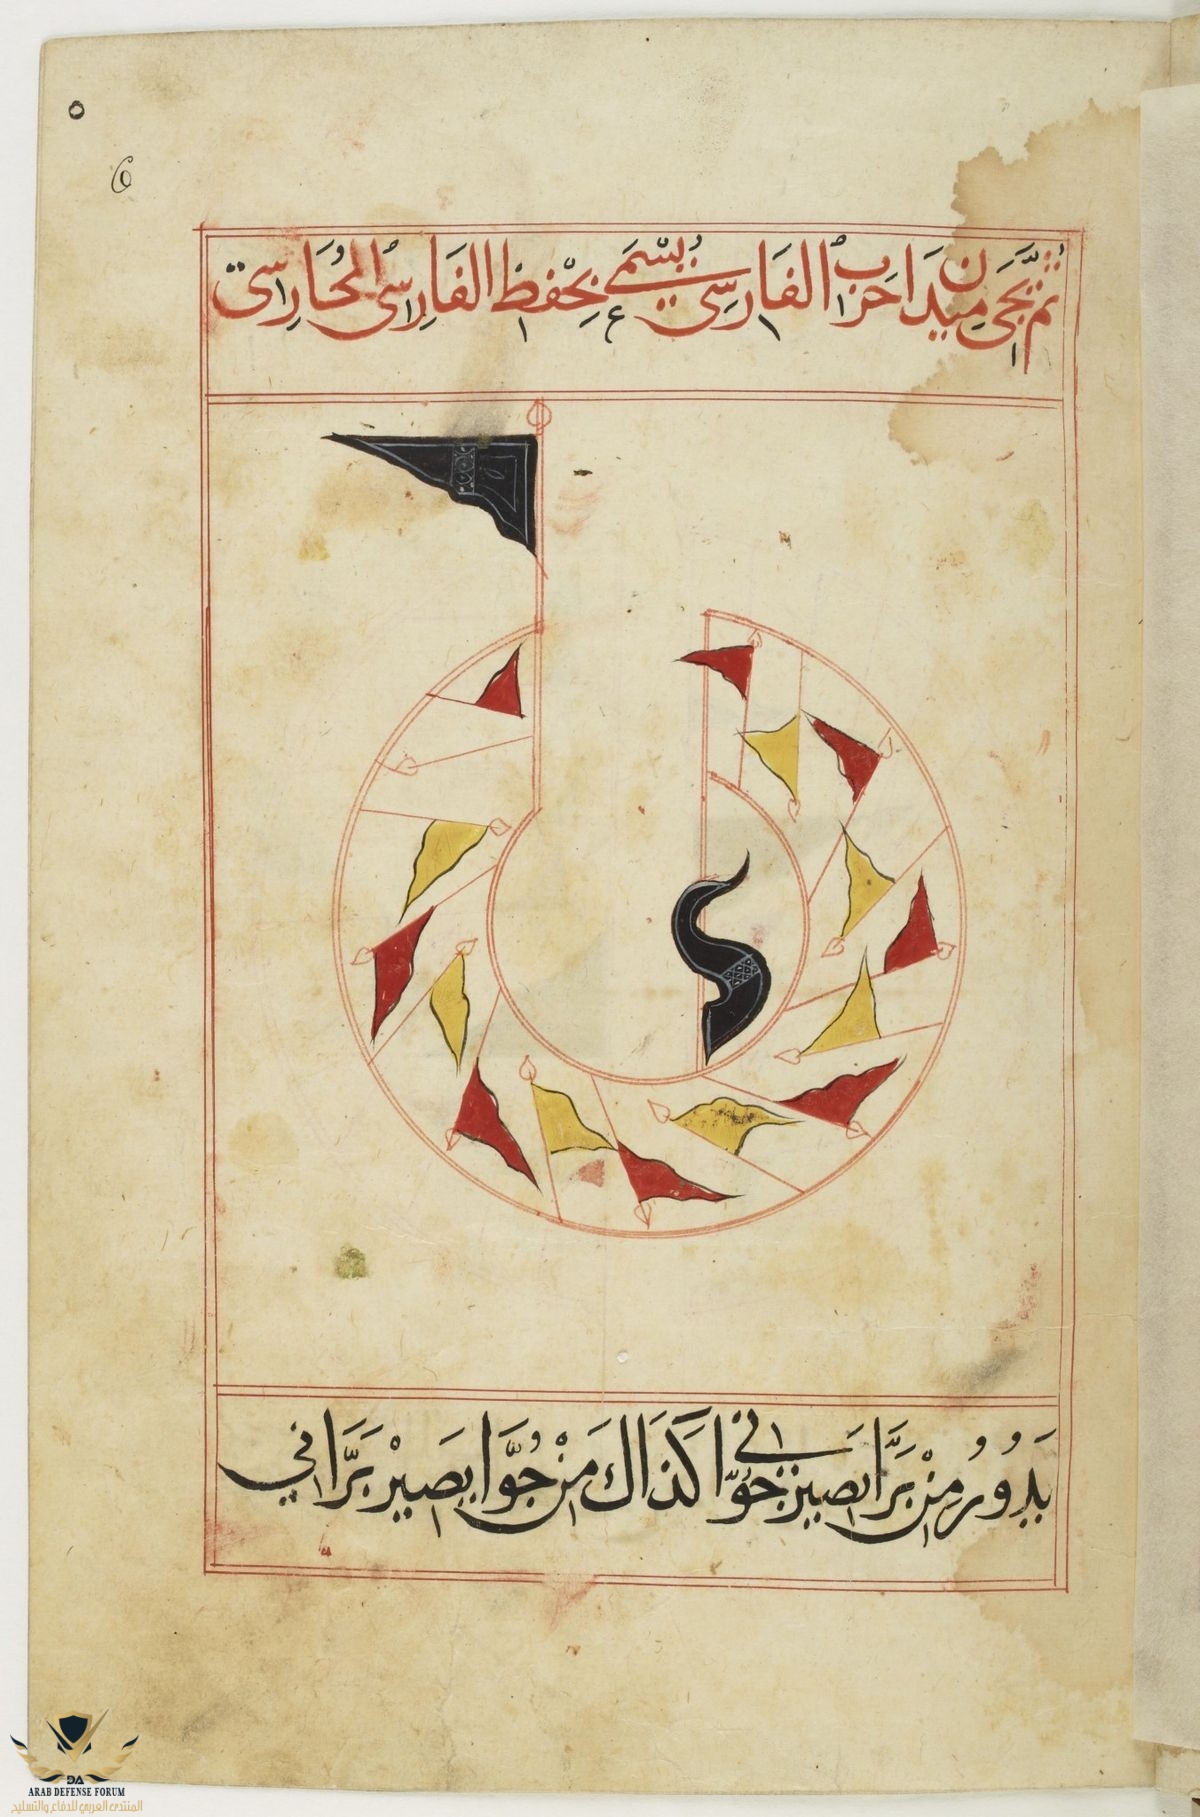 ٥
6
ثم يجي ميدان حرب الفارسي يسمى بحفظ الفارس المحارسي
يدور من برا يصير جوا كذاك من جوا يصير براني
ARAB DEFENSE FORUM
المنتدى العربي للدفاع والتسليح